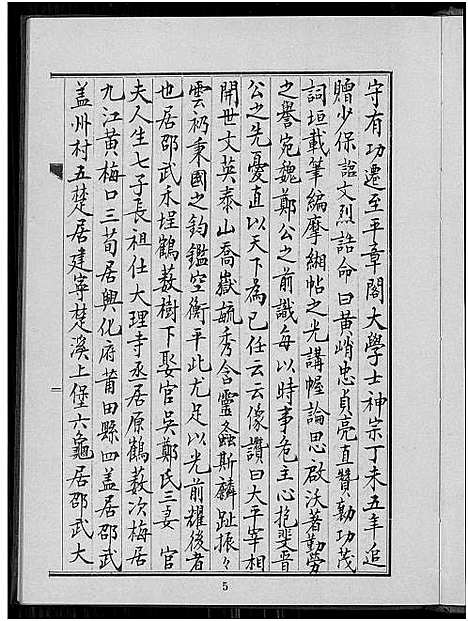 守有功遷至平章閣大學士神宗丁未五年追
贈少保諡文烈誥命曰黃峭忠貞亮直贊勷功茂
詞垣載筆編摩緗帖之光講幄論思啟沃著勤勞
之譽宛魏鄭公之前識每以時事危主心抱斐晉
公之先憂直以天下為已任云云像讚曰大平宰相
開世文英泰山喬嶽毓秀含靈螽斯麟趾振々
雲礽秉國之鈞鑑空衡平此尤足以光前耀後者
也居邵武禾坪鶴薮樹下娶官吳鄭氏三妻 官
夫人生七子長祖仕大理寺丞居原鶴薮次梅居
九江黃梅口三荀居興化府莆田縣四盖居邵武
盖州村五楚居建寧楚溪上堡六龜居邵武大
5